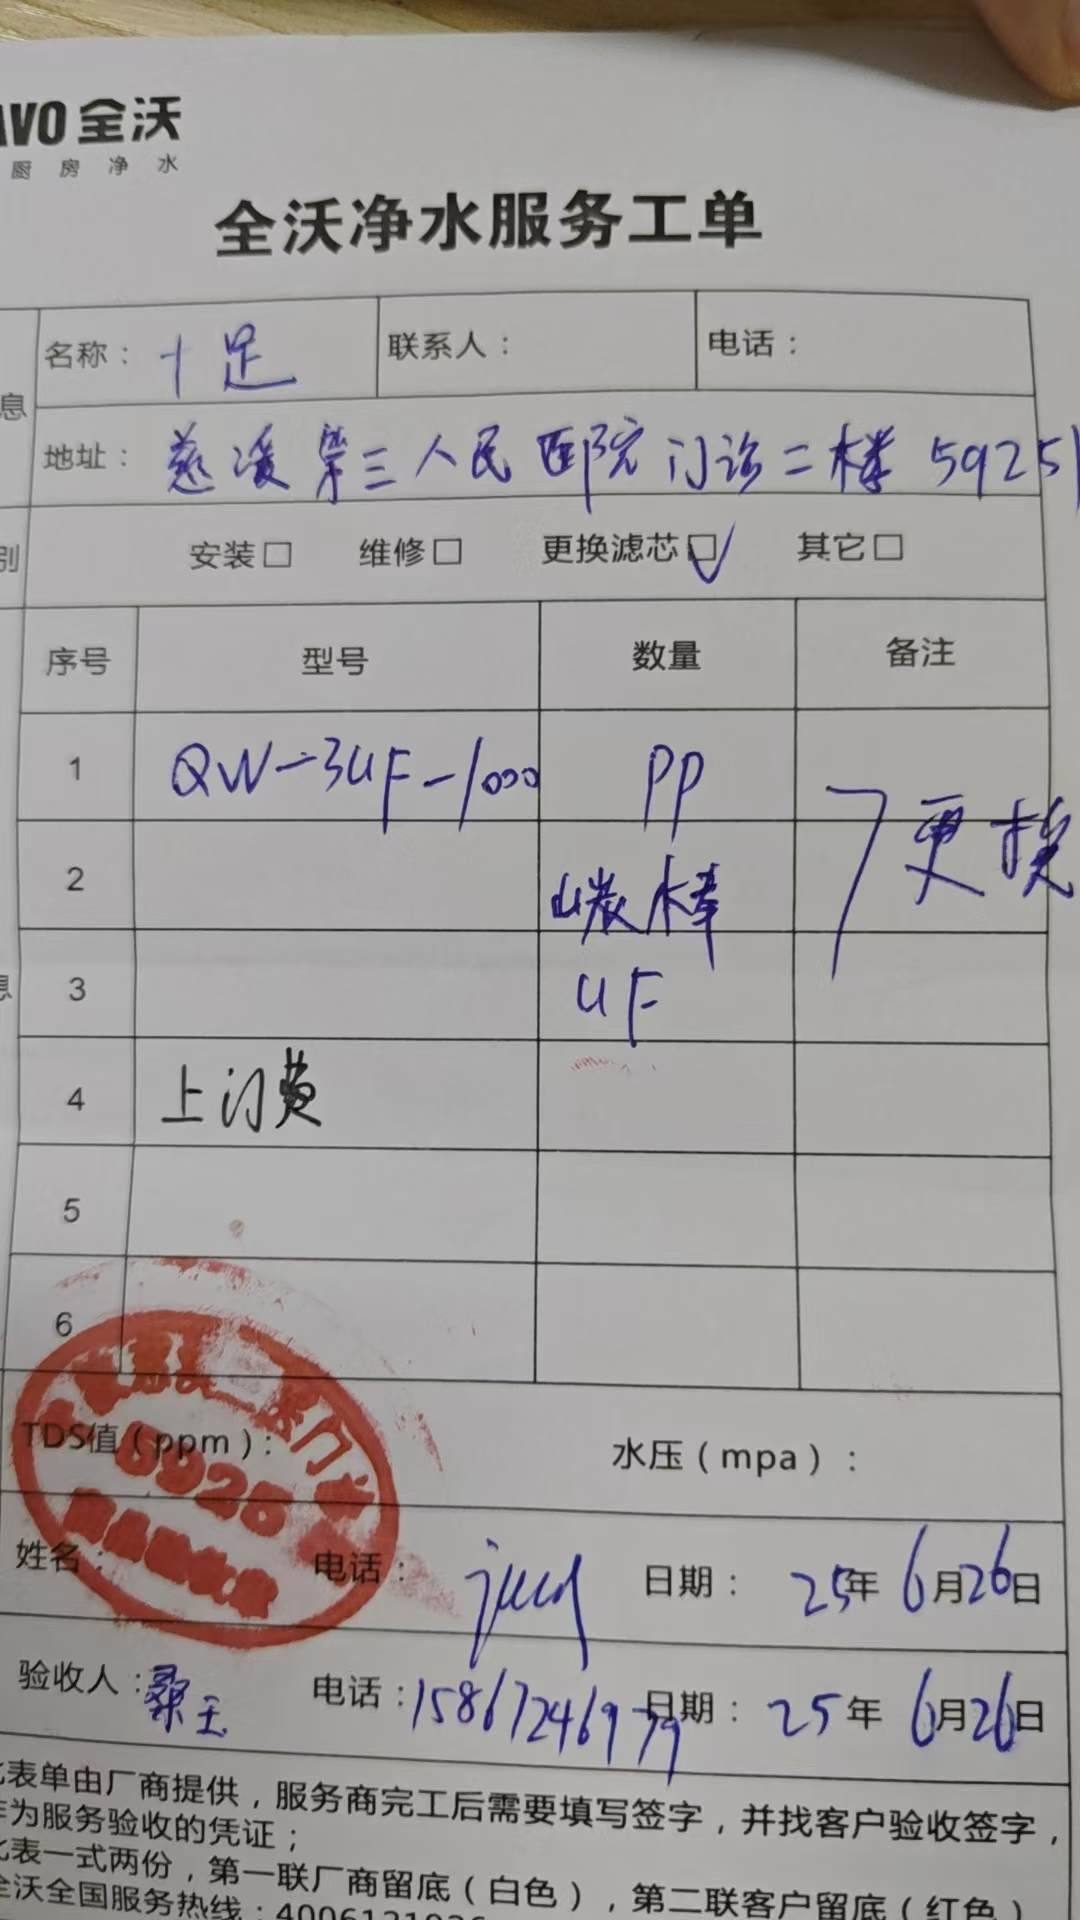 AVO 全沃
厨房净水
全沃净水服务工单
息
名称：十足 联系人： 电话：
地址：慈溪第三人民医院门诊二楼 59251
别
安装□ 维修□ 更换滤芯☑ 其它□
序号 型号 数量 备注
1 QW-3UF-1000 PP
更换
2 碳棒
息
3 UF
4 上门费
5
6
TDS值（ppm）： 水压（mpa）：
5925
姓名： 电话： 日期：25年6月26日
验收人： 电话：15867246979 日期：25年6月26日
表单由厂商提供，服务商完工后需要填写签字，并找客户验收签字，
为服务验收的凭证；
表一式两份，第一联厂商留底（白色），第二联客户留底（红色）
全沃全国服务热线：